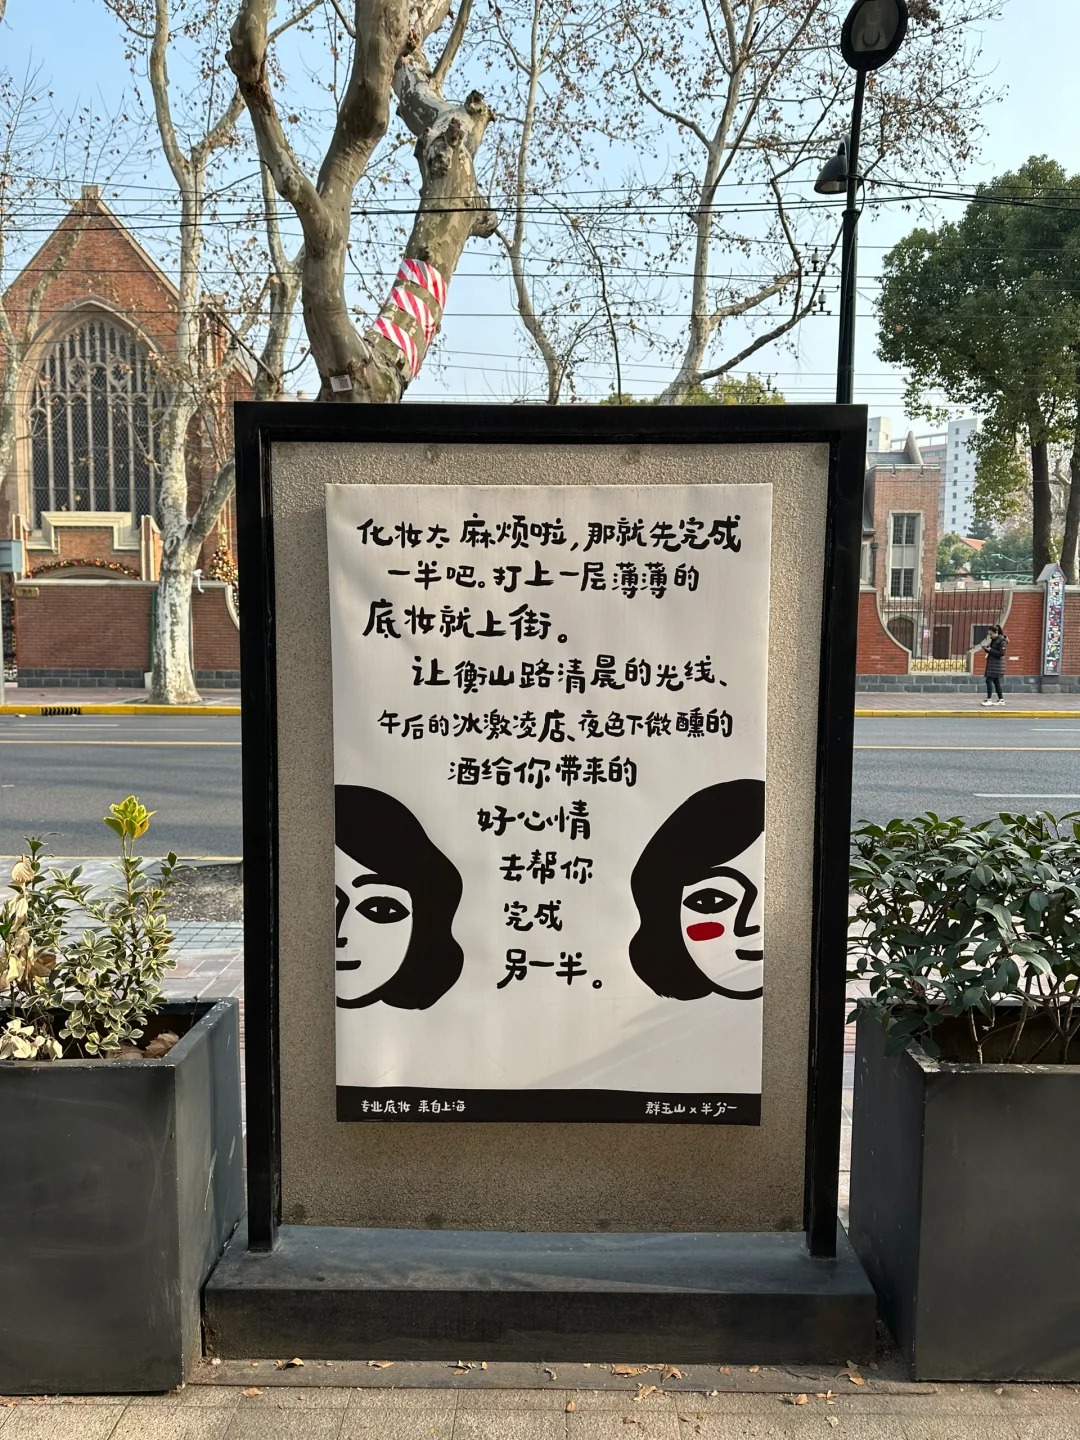 化妆太麻烦啦,那就先完成
一半吧。打上一层薄薄的
底妆就上街。
让衡山路清晨的光线、
午后的冰激凌店、夜色下微醺的
酒给你带来的
好心情
去帮你
完成
另一半。
专业底妆 来自上海
群玉山 x 半分一